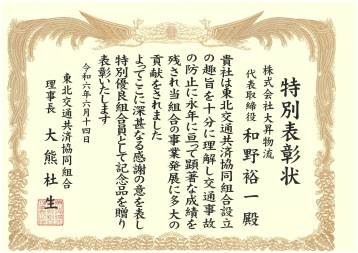 特別表彰状
株式会社大昇物流
代表取締役 和野裕一殿
貴社は東北交通共済協同組合設立
の趣旨を十分に理解し交通事故
の防止に永年に亘って顕著な成績を
残され当組合の事業発展に多大の
貢献をされました
よってここに深甚なる感謝の意を表し
特別優良組合員として記念品を贈り
表彰いたします
令和六年六月十四日
東北交通共済協同組合
理事長 大熊杜生